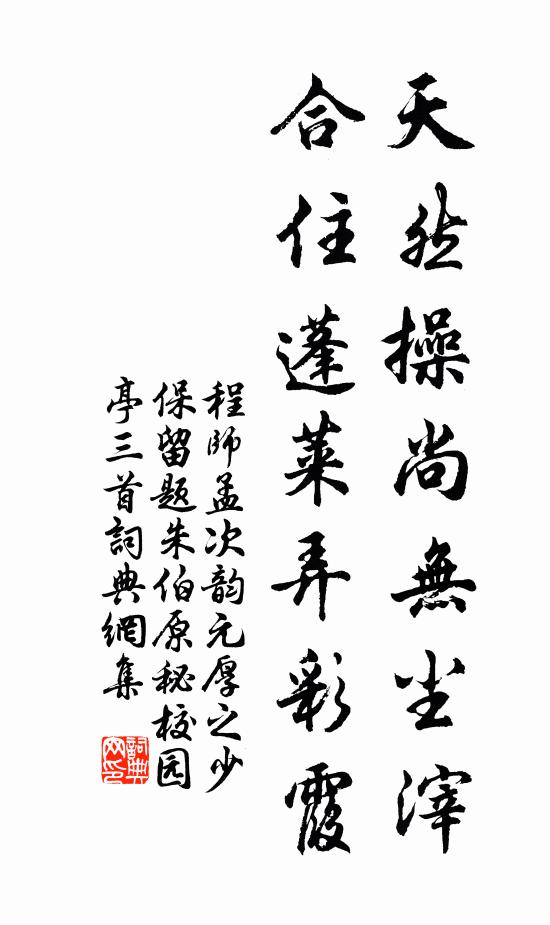 天然操尚無尘滓
合住蓬萊弄彩霞
程師孟次韵元厚之少
保留题朱伯原秘校园
亭三首詞典網集
詞典
网印